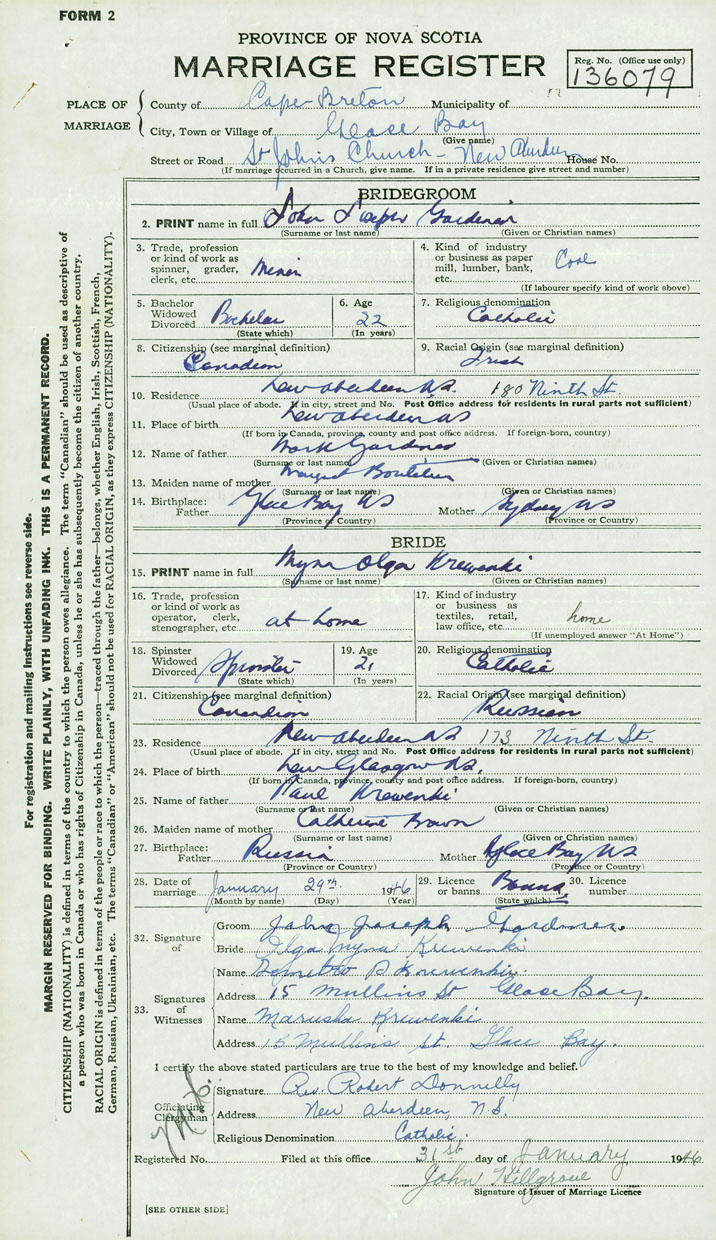 FORM 2
PROVINCE OF NOVA SCOTIA
MARRIAGE REGISTER
Reg. No. (Office use only)
136079
PLACE OF MARRIAGE
County of Cape Breton Municipality of
City, Town or Village of Glace Bay
(Give name)
Street or Road St Johns Church - New Aberdeen House No.
(If marriage occurred in a Church, give name. If in a private residence give street and number)
BRIDEGROOM
2. PRINT name in full John Joseph Gardiner
(Surname or last name) (Given or Christian names)
3. Trade, profession or kind of work as spinner, grader, clerk, etc. Miner
4. Kind of industry or business as paper mill, lumber, bank, etc. Coal
(If labourer specify kind of work above)
5. Bachelor Widowed Divorced Bachelor
(State which)
6. Age 22
(In years)
7. Religious denomination Catholic
8. Citizenship (see marginal definition) Canadian
9. Racial Origin (see marginal definition) Irish
10. Residence New Aberdeen NS 180 Ninth St.
(Usual place of abode. If in city, street and No. Post Office address for residents in rural parts not sufficient)
11. Place of birth New Aberdeen NS
(If born in Canada, province, county and post office address. If foreign-born, country)
12. Name of father Gardiner
(Surname or last name) (Given or Christian names)
13. Maiden name of mother Margret Boutilier
(Surname or last name) (Given or Christian names)
14. Birthplace: Father Glace Bay NS Mother Sydney NS
(Province or Country) (Province or Country)
BRIDE
15. PRINT name in full Myna Olga Krewenki
(Surname or last name) (Given or Christian names)
16. Trade, profession or kind of work as operator, clerk, stenographer, etc. at home
17. Kind of industry or business as textiles, retail, law office, etc. home
(If unemployed answer "At Home")
18. Spinster Widowed Divorced Spinster
(State which)
19. Age 21
(In years)
20. Religious denomination Catholic
21. Citizenship (see marginal definition) Canadian
22. Racial Origin (see marginal definition) Russian
23. Residence New Aberdeen NS 173 Ninth St.
(Usual place of abode. If in city, street and No. Post Office address for residents in rural parts not sufficient)
24. Place of birth New Glasgow NS.
(If born in Canada, province, county and post office address. If foreign-born, country)
25. Name of father Paul Krewenki
(Surname or last name) (Given or Christian names)
26. Maiden name of mother Catherine Brown
(Surname or last name) (Given or Christian names)
27. Birthplace: Father Russia Mother Glace Bay NS
(Province or Country) (Province or Country)
28. Date of marriage January 29th 1946
(Month by name) (Day) (Year)
29. Licence or banns Banns
(State which)
30. Licence number
32. Signature of
Groom John Joseph Gardiner.
Bride Olga Myna Krewenki
33. Signatures of Witnesses
Name Krewenki
Address 15 Mullins St Glace Bay.
Name Marusha Krewenki
Address 15 Mullins St. Glace Bay.
I certify the above stated particulars are true to the best of my knowledge and belief.
Officiating Clergyman
Signature Rev. Robert Donnelly
Address New Aberdeen, N.S.
Religious Denomination Catholic
Registered No. Filed at this office 31st day of January 1946
John Hillgrove
Signature of Issuer of Marriage Licence
[SEE OTHER SIDE]
For registration and mailing instructions see reverse side.
MARGIN RESERVED FOR BINDING. WRITE PLAINLY, WITH UNFADING INK. THIS IS A PERMANENT RECORD.
CITIZENSHIP (NATIONALITY) is defined in terms of the country to which the person owes allegiance. The term "Canadian" should be used as descriptive of
a person who was born in Canada or who has rights of Citizenship in Canada, unless he or she has subsequently become the citizen of another country.
RACIAL ORIGIN is defined in terms of the people or race to which the person—traced through the father—belongs, whether English, Irish, Scottish, French,
German, Russian, Ukrainian, etc. The terms "Canadian" or "American" should not be used for RACIAL ORIGIN, as they express CITIZENSHIP (NATIONALITY).